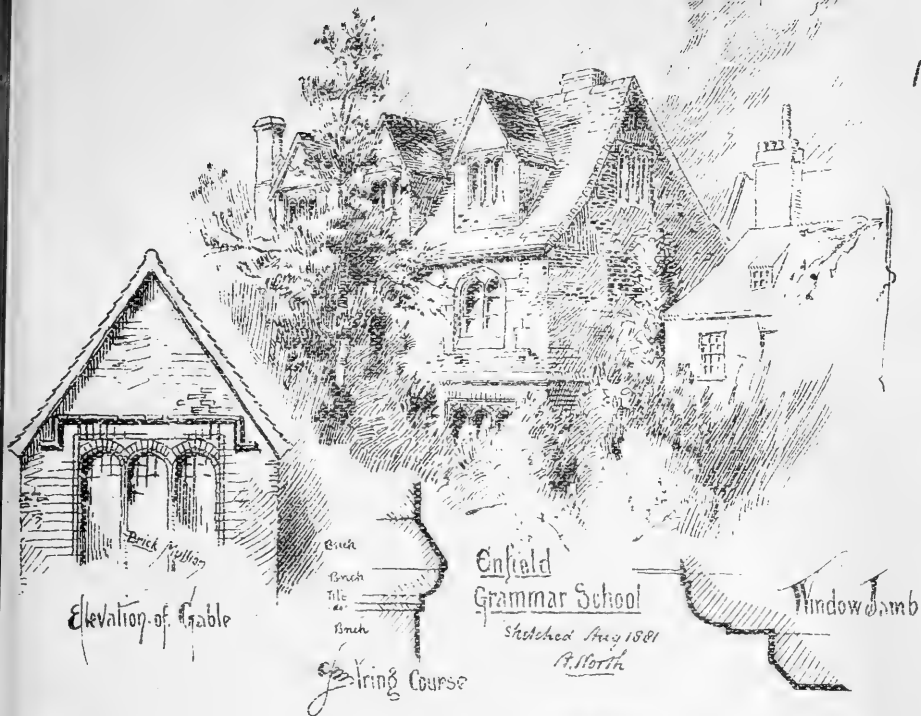 Brick Mullion
Elevation of Gable
Brick
Brick
Tile
do
Brick
String Course
Enfield
Grammar School
Sketched Aug 1881
A. North
Window Jamb